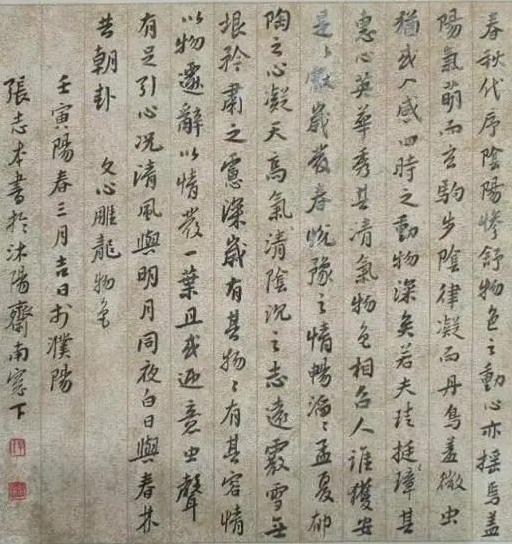 春秋代序陰陽慘舒物色之動心亦搖焉盖
陽氣萌而玄駒步陰律凝而丹鳥羞微虫
猶或入感四時之動物深矣若夫珪挺璋其
惠心英華秀其清氣物色相召人誰獲安
是以獻歲發春悅豫之情暢滔〻孟夏郁
陶之心凝天高氣清陰沉之志遠霰雪無
垠矜肅之慮深歲有其物〻有其容情
以物遷辭以情發一葉且或迎意虫聲
有足引心況清風與明月同夜白日與春林
共朝哉 文心雕龍物色
壬寅陽春三月吉日於濮陽
張志本書於沐陽齋南窓下